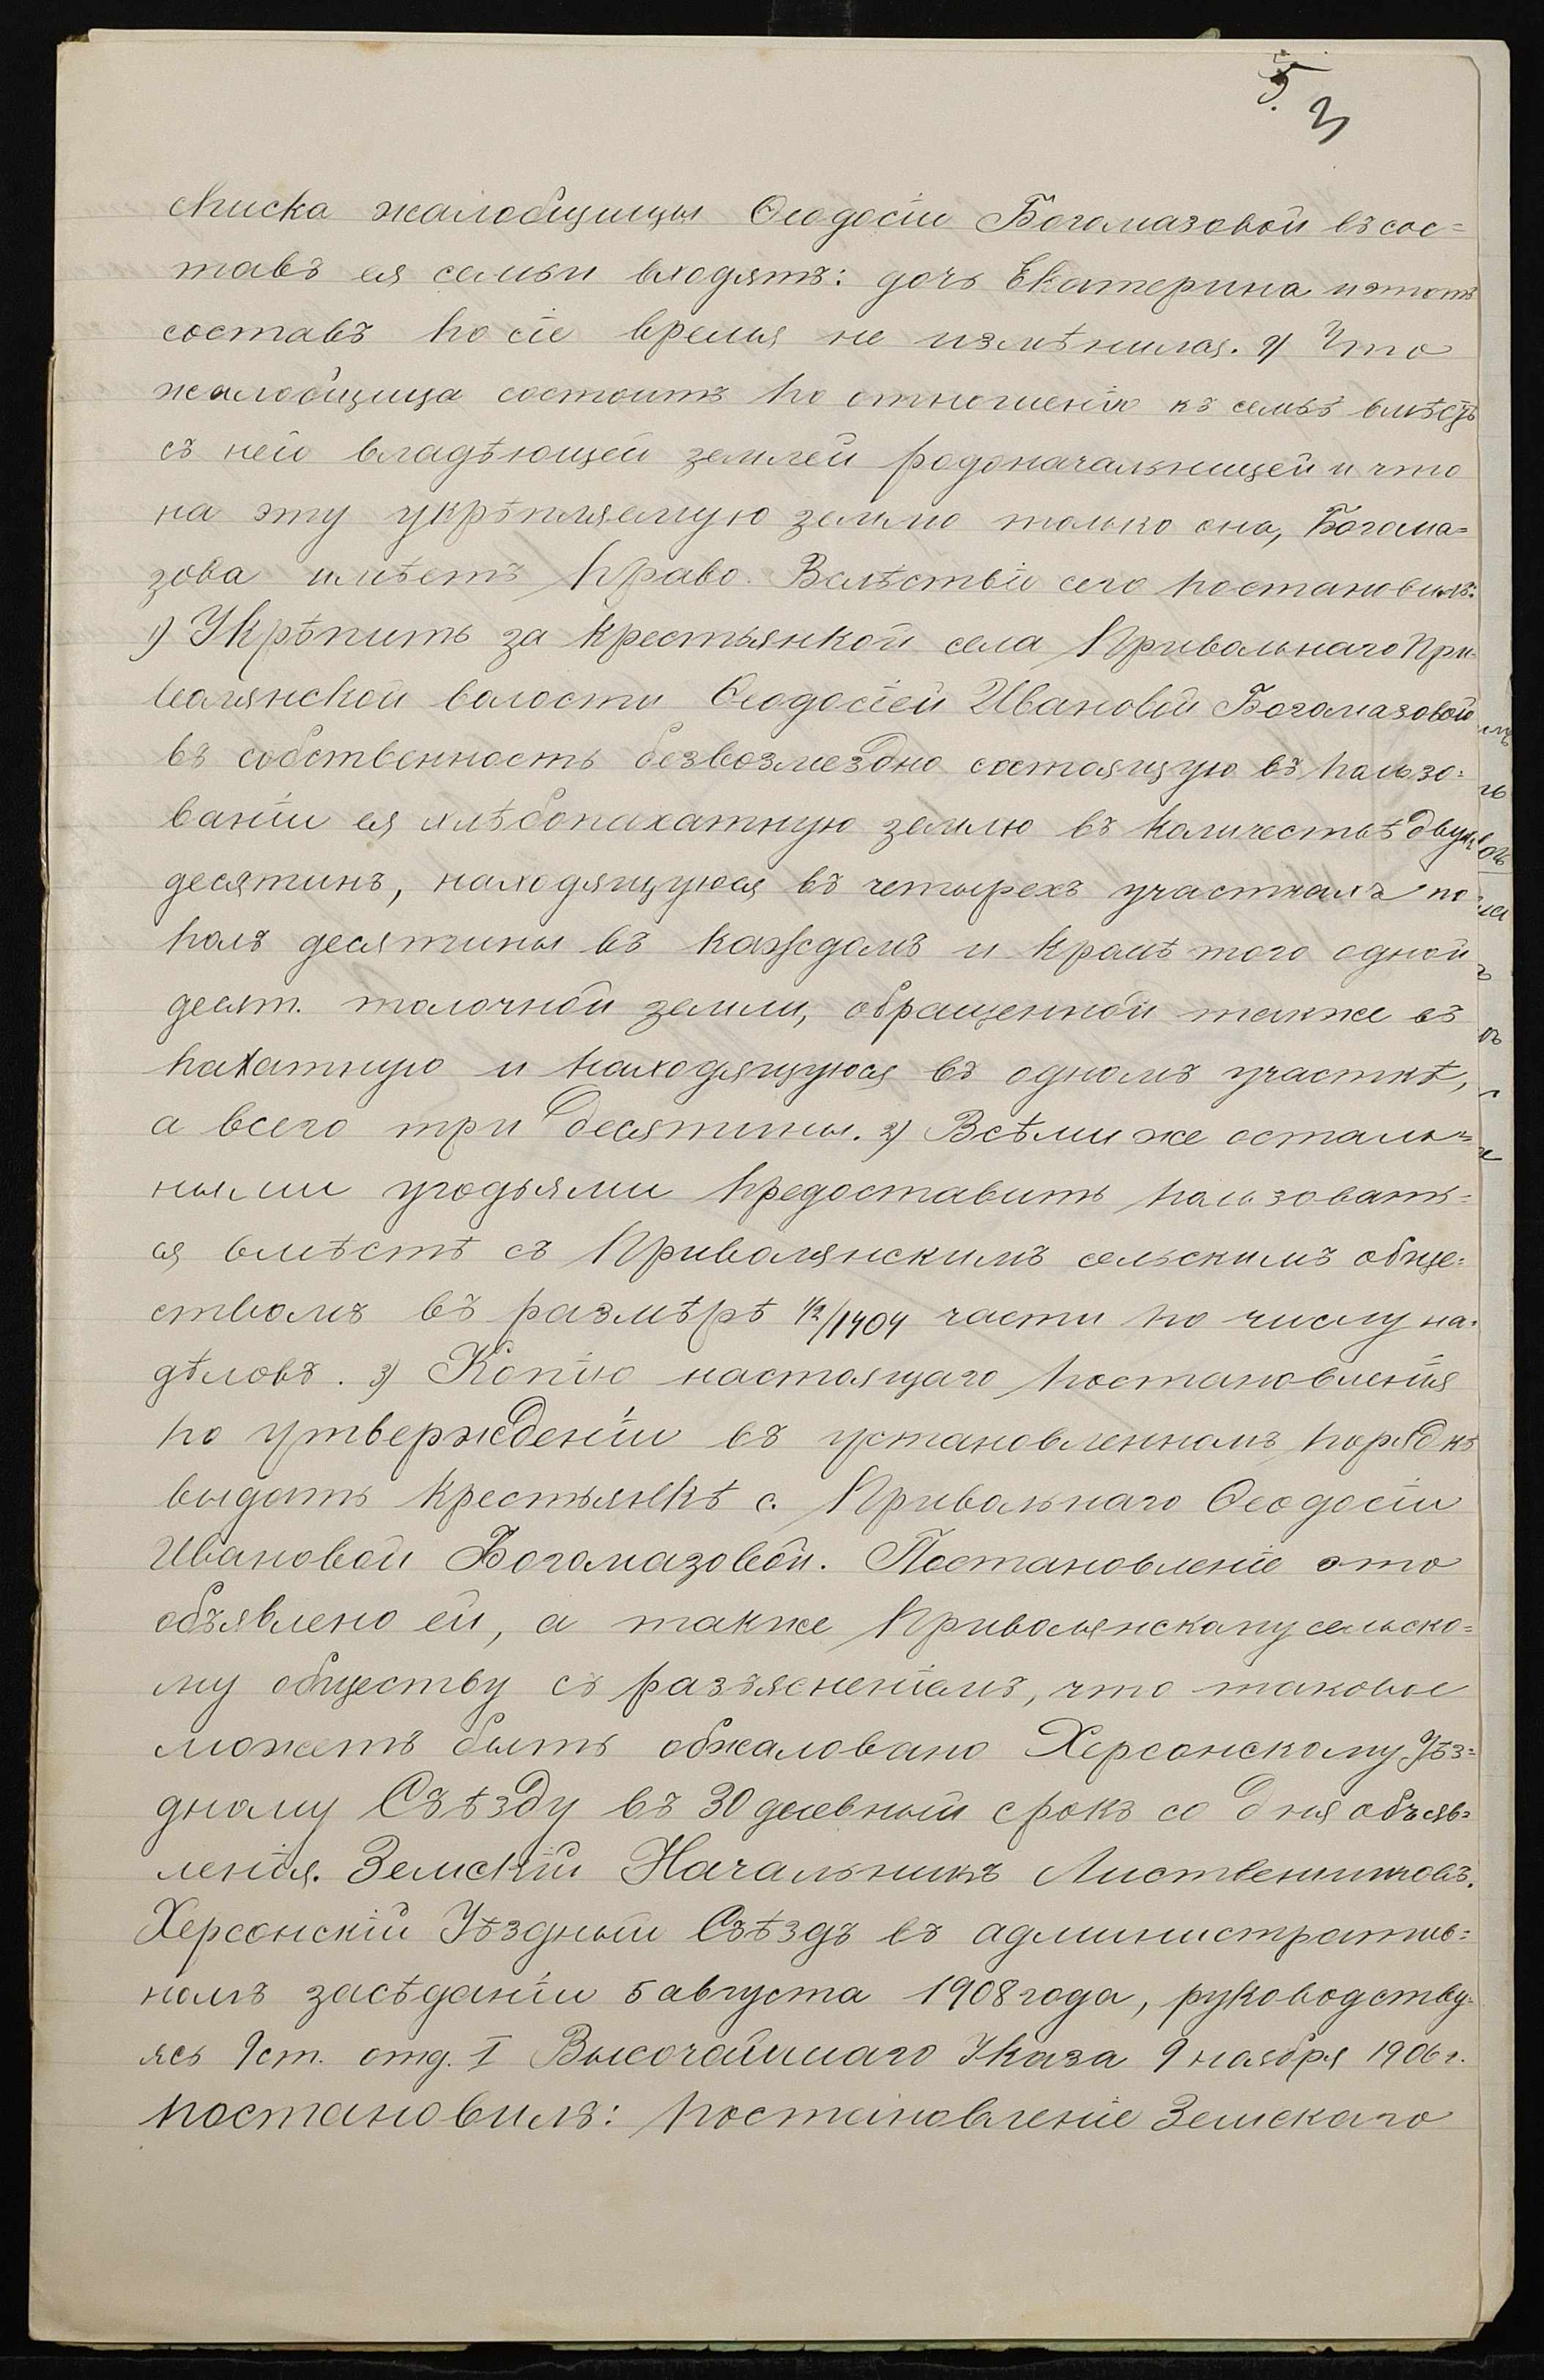 5.
3
списка жалобщицы Ѳеодосіи Богомазовой въ сос=
тавъ ея семьи входятъ: дочь Екатерина и этотъ
составъ по сіе время не измѣнился. 9) Что
жалобщица состоитъ по отношенію къ семьѣ вмѣстѣ
съ нею владѣющей землей родоначальницей и что
на эту укрѣпляемую землю только она, Богома=
зова имѣетъ право. Вслѣствіи сего постановилъ:
1) Укрѣпить за крестьянкой села Привольнаго При-
волянской волости Ѳеодосіей Ивановой Богомазовой
въ собственность безвозмездно состоящую въ пользо=
ваніи ея хлѣбопахатную землю въ количествѣ двухъ
десятинъ, находящуюся въ четырехъ участкахъ по
полъ десятины въ каждомъ и кромѣ того одной
десят. толочной земли, обращенной также въ
пахатную и находящуюся въ одномъ участкѣ,
а всего три десятины. 2) Всѣми же осталь=
ными угодьями предоставить пользовать=
ся вмѣстѣ съ Приволянскимъ сельскимъ обще=
ствомъ въ размѣрѣ ½/1404 части по числу на=
дѣловъ. 3) Копію настоящаго постановленія
по утвержденіи въ установленномъ порядкѣ
выдать крестьянкѣ с. Привольнаго Ѳеодосіи
Ивановой Богомазовой. Постановленіе это
объявлено ей, а также Приволянскому сельско=
му обществу съ разъясненіемъ, что таковое
можетъ быть обжаловано Херсонскому Уѣз=
дному Съѣзду въ 30 дневный срокъ со дня объяв=
ленія. Земскій Начальникъ Лиственниковъ.
Херсонскій Уѣздный Съѣздъ въ административ=
номъ засѣданіи 5 августа 1908 года, руководству-
ясь 9 ст. отд. I Высочайшаго Указа 9 ноября 1906 г.
постановилъ: постановленіе Земскаго